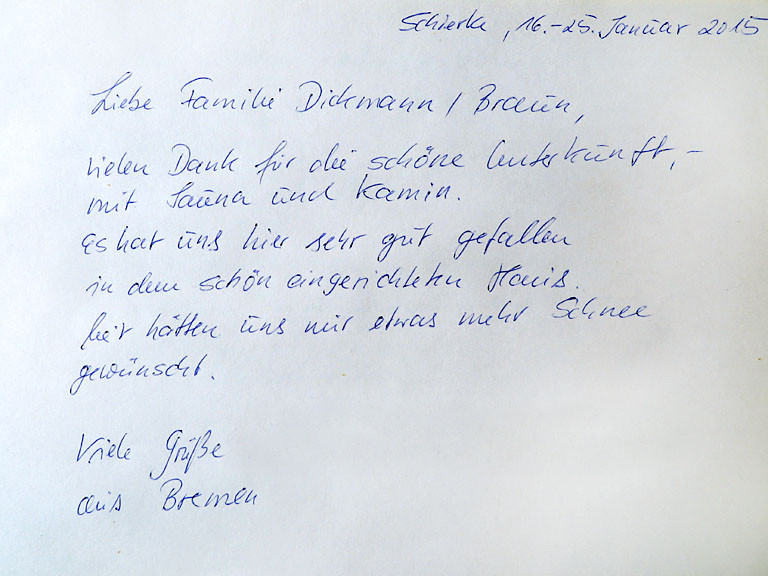 Schierke, 16.-25. Januar 2015
Liebe Familie Dickmann / Braun,
vielen Dank für die schöne Unterkunft, -
mit Sauna und Kamin.
Es hat uns hier sehr gut gefallen
in dem schön eingerichteten Haus.
Wir hätten uns nur etwas mehr Schnee
gewünscht.
Viele Grüße
aus Bremen